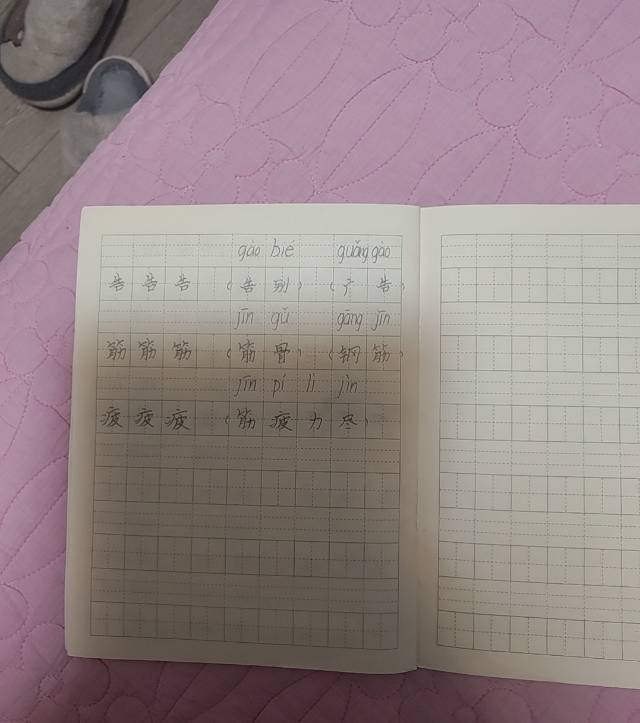 gào bié guǎng gào
告 告 告 (告 别) (广 告)
jīn gǔ gāng jīn
筋 筋 筋 (筋 骨) (钢 筋)
jīn pí lì jìn
疲 疲 疲 (筋 疲 力 尽)